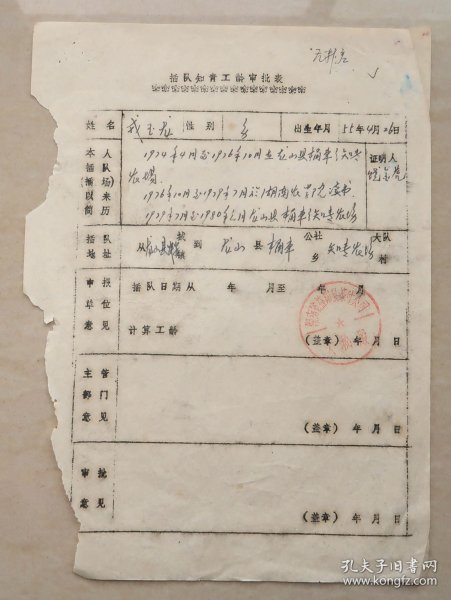 插队知青工龄审批表
姓名 性别 出生年月 55年4月26日
本人插队(插场)以来简历
1974年4月至1976年10月在龙山县桶车知青农场
1976年10月至1979年7月于湖南农学院读书
1979年7月至1980年 月龙山县桶车知青农场
证明人
插队地址 从龙山县 城镇 到 龙山 县 桶车 公社 乡 知青农场 大队 村
申报单位意见
插队日期从 年 月至 年 月
计算工龄
(盖章) 年 月 日
主管部门意见
(盖章) 年 月 日
审批意见
(盖章) 年 月 日
孔夫子旧书网
www.kongfz.com